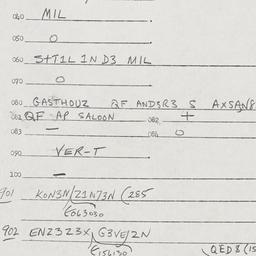 040 MIL
050 O
060 S+T1L 1N D3 MIL
070 O
080 GASTHOUZ QF AND3R3 S AXSAN8
081 QF AP SALOON 082 +
083 — 084 O
090 VER-T
100 —
901 KON3N/Z1N73N (285
(063030
902 EN2323X, G3VE/2N
(156130
QED8 (15